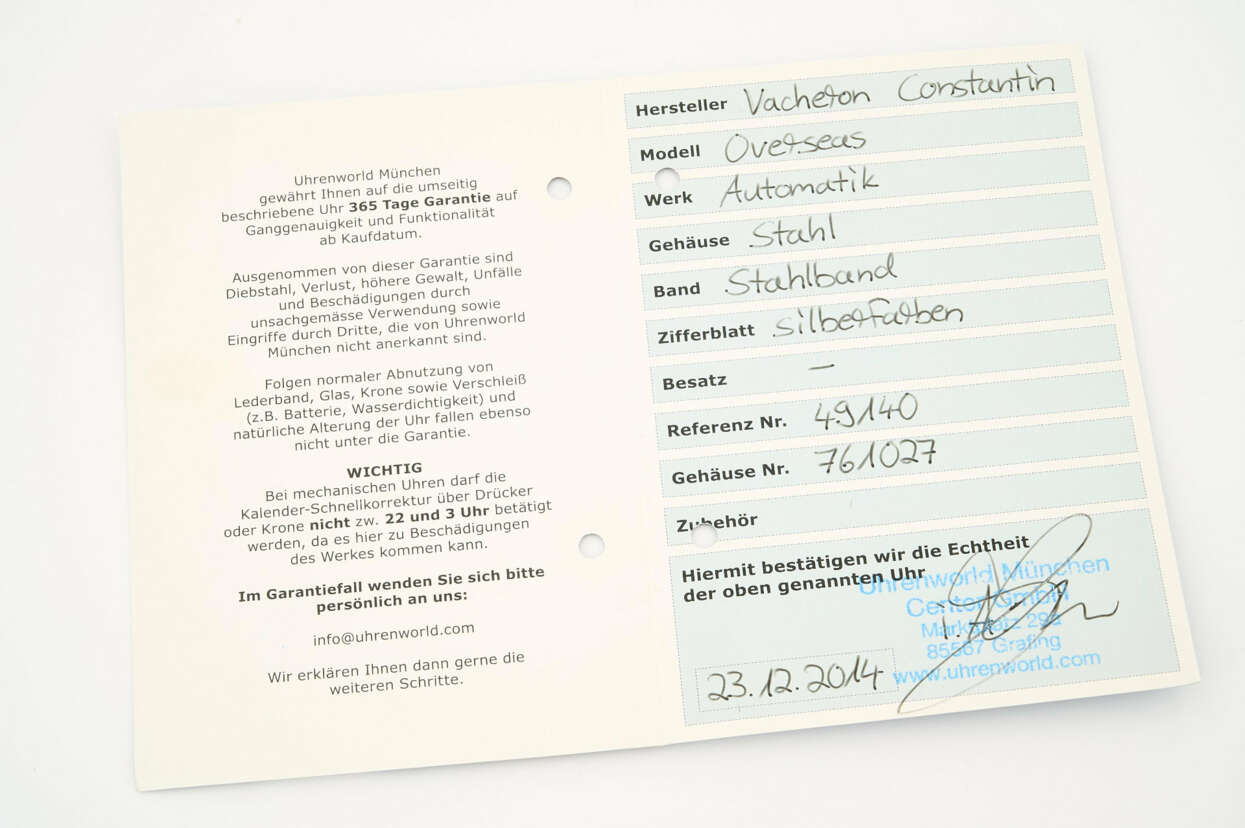 Uhrenworld München
gewährt Ihnen auf die umseitig
beschriebene Uhr 365 Tage Garantie auf
Ganggenauigkeit und Funktionalität
ab Kaufdatum.
Ausgenommen von dieser Garantie sind
Diebstahl, Verlust, höhere Gewalt, Unfälle
und Beschädigungen durch
unsachgemässe Verwendung sowie
Eingriffe durch Dritte, die von Uhrenworld
München nicht anerkannt sind.
Folgen normaler Abnutzung von
Lederband, Glas, Krone sowie Verschleiß
(z.B. Batterie, Wasserdichtigkeit) und
natürliche Alterung der Uhr fallen ebenso
nicht unter die Garantie.
WICHTIG
Bei mechanischen Uhren darf die
Kalender-Schnellkorrektur über Drücker
oder Krone nicht zw. 22 und 3 Uhr betätigt
werden, da es hier zu Beschädigungen
des Werkes kommen kann.
Im Garantiefall wenden Sie sich bitte
persönlich an uns:
info@uhrenworld.com
Wir erklären Ihnen dann gerne die
weiteren Schritte.
Hersteller Vacheron Constantin
Modell Overseas
Werk Automatik
Gehäuse Stahl
Band Stahlband
Zifferblatt silberfarben
Besatz —
Referenz Nr. 49140
Gehäuse Nr. 761027
Zubehör
Hiermit bestätigen wir die Echtheit
der oben genannten Uhr
Uhrenworld München
Center GmbH
Marktplatz 29a
85567 Grafing
www.uhrenworld.com
23.12.2014